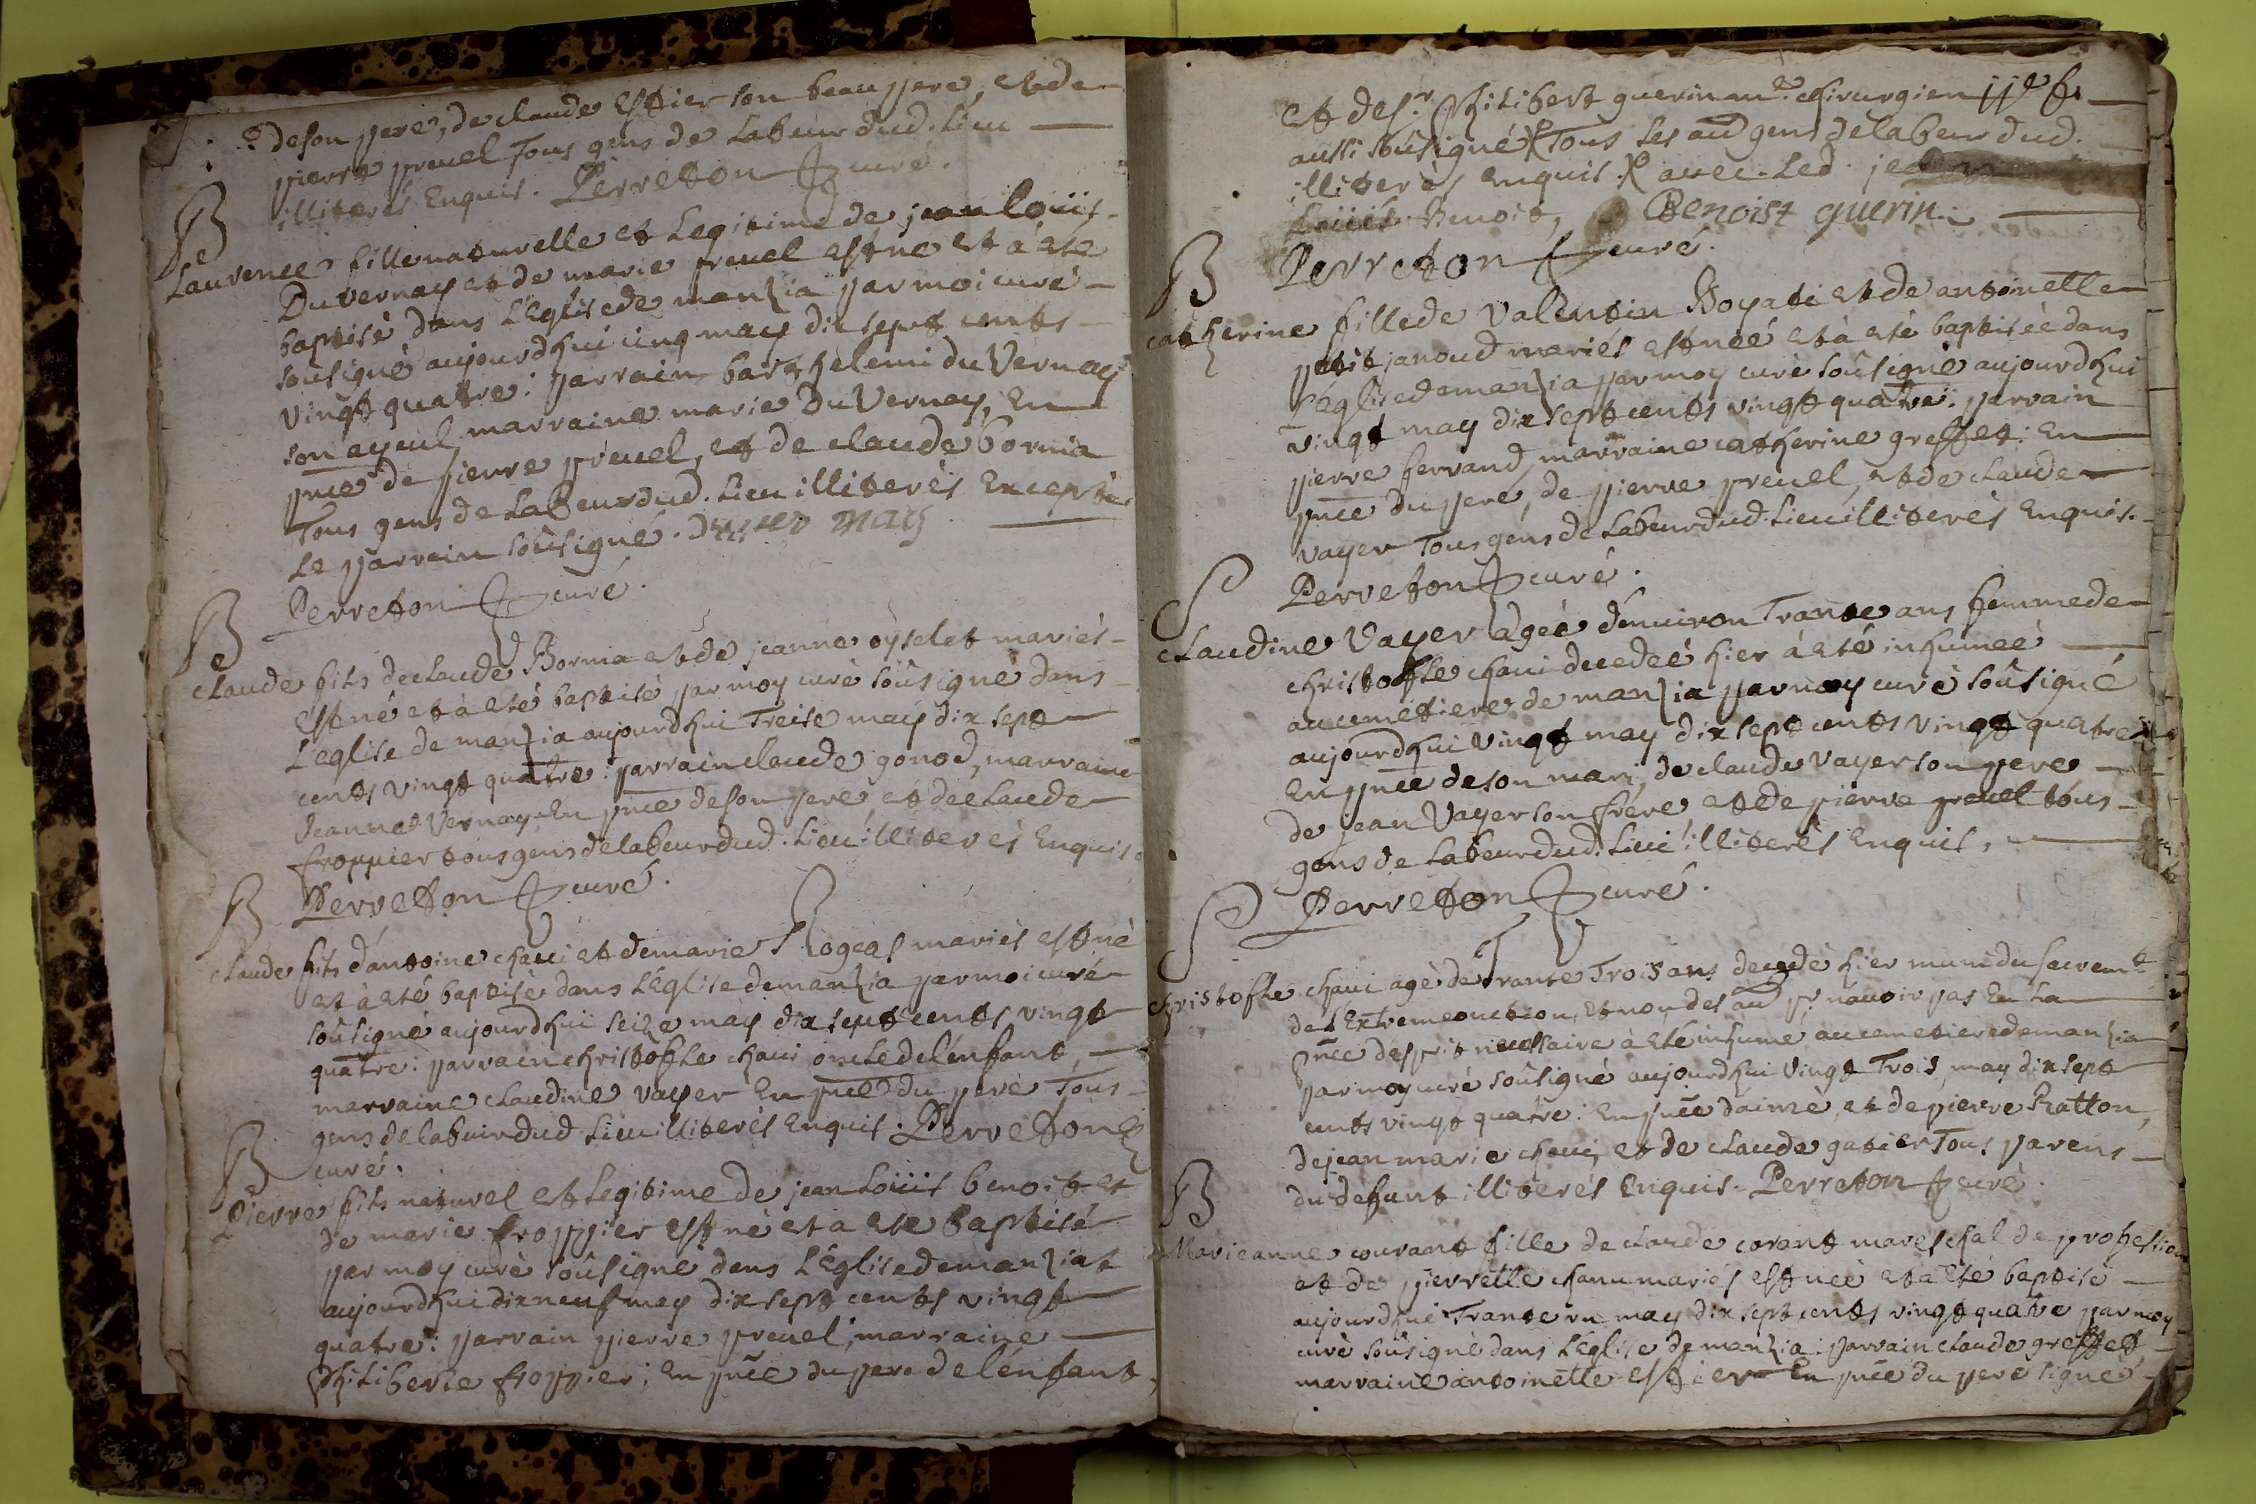 de son pere, de claude Estier son beau pere, et de
pierre preuel Tous gens de Labeur dud. Lieu
illiterés Enquis. Perreton curé.
B
Laurence fille naturelle et Legitime de jean loüis
Du vernay et de marie preuel est né et à eté
baptisé dans L'Eglise de manzia par moi curé
soûsigné aujourd'hui cinq may dix sept cents
vingt quatre: parrain barthelemi du Vernay
son ayeul, marraine marie Du Vernay, En
pñce de pierre preuel, et de claude borma
Tous gens de Labeur dud. Lieu illiterés Excepté
Le parrain soûsigné.
Perreton curé.
B
claude fils de claude Borma et de jeanne oyselet mariés
est né et à eté baptisé par moy curé soûsigné dans
L'eglise de manzia aujourd'hui Treise may dix sept
cents vingt quatre: parrain claude gonod, marraine
jeanne Vernay En pñce de son pere et de claude
froppier tous gens de labeur dud. Lieu illiterés Enquis.
Perreton curé.
B
claude fils d'antoine chaui et de marie Rogeas mariés est né
et à eté baptisé dans L'Eglise de manzia par moi curé
soûsigné aujourd'hui seize may dix sept cents vingt
quatre: parrain christofle chaui oncle de l'enfant,
marraine claudine vayer En pñce du pere Tous
gens de labeur dud. Lieu illiterés Enquis. Perreton
curé.
B
Pierre fils naturel et Legitime de jean Loüis benoit et
de marie froppier est né et a eté Baptisé
par moy curé soûsigné dans L'Eglise de manziat
aujourd'hui dixneuf may dix sept cents vingt
quatre: parrain pierre preuel, marraine
philiberte froppier; En pñce du pere de l'enfant,
et de sr. Philibert guerin me. chirurgien
aussi soûsigné Tous Les aud gens de labeur dud.
illiterés Enquis. avec Led. jean
Loüis Benoit, Benoist guerin
Perreton curé.
B
catherine fille de Valentin Boyati et de antoinette
petit janoud mariés est neé et à eté baptiseé dans
L'églises de manzia par moy curé soûsigné aujourd'hui
vingt may dix sept cents vingt quatre: parrain
pierre ferrand, marraine catherine greffet: En
pñce du pere, de pierre preuel, et de claude
vayer Tous gens de Labeur dud. Lieu illiterés Enquis.
Perreton curé.
S
claudine Vayer ageé d'environ Trante ans femme de
christofle chaui decedeé hier à eté inhumeé
au cemetiere de manzia par moy curé soûsigné
aujourd'hui vingt may dix sept cents vingt quatre
En pñce de son mari, de claude vayer son pere
de jean Vayer son frere, et de pierre preuel tous
gens de Labeur dud. Lieu illiterés Enquis,
Perreton curé.
S
christofle chaui agé de trante Trois ans decedé hier muni du sacremt
de L'Extremeonction, et non des au pr n'avoir pas Eu La
pñce d'esprit necessaire à eté inhumé au cemetiere de manzia
par moy curé soûsigné aujourd'hui vingt Trois may dix sept
cents vingt quatre: En pñce d'aimé, et de pierre Ratton,
de jean marie chaui, et de claude gatier Tous parens
du defunt illiterés Enquis. Perreton curé.
B
Marieanne courant fille de claude corant mareschal de profession
et de pierrette chanu mariés est neé et a eté baptisé
aujourd'hui Trante un may dix sept cents vingt quatre par moy
curé soûsigné dans L'Eglise de manzia: parrain claude greffet,
marraine antoinette estier En pñce du pere signés